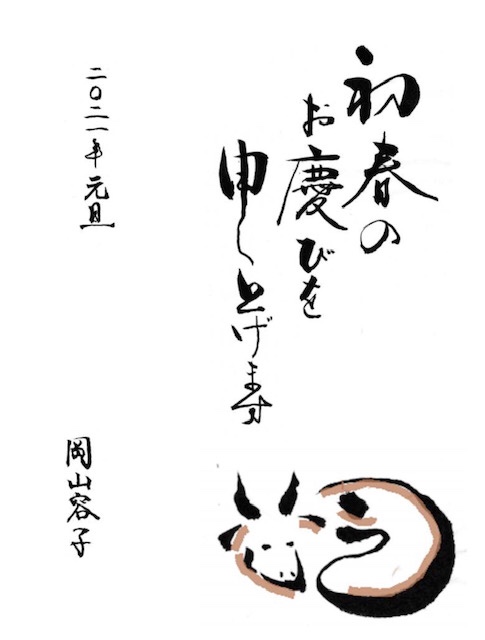 初春の
お慶びを
申し上げます
二〇二一年 元旦
岡山容子
う